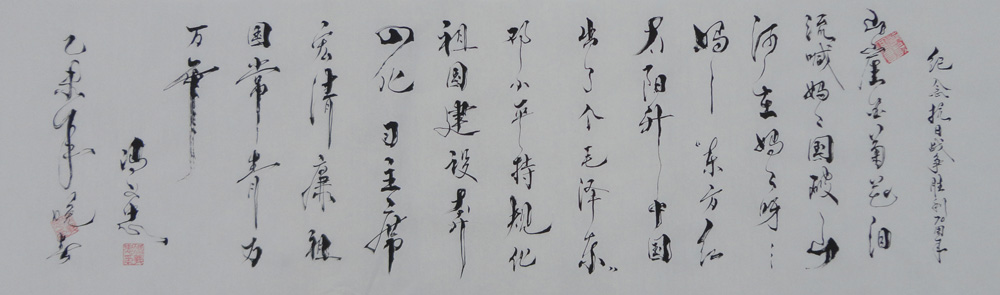 纪念抗日战争胜利70周年
山崖菊花泪
流喊妈妈国破山
河在妈妈呀
妈〻"东方红
太阳升〻中国
出了个毛泽东"
邓小平〻特规化
祖国建设奔
四化 习主席
宏清廉祖
国常青
万年
冯文忠
乙未年晚春